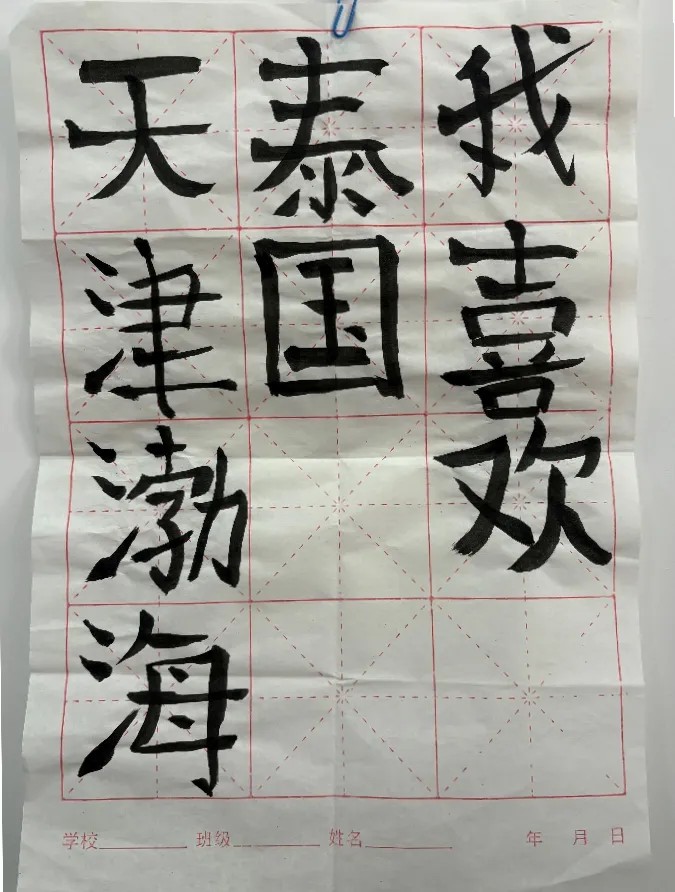 我喜欢
泰国
天津渤海
学校 班级 姓名 年 月 日